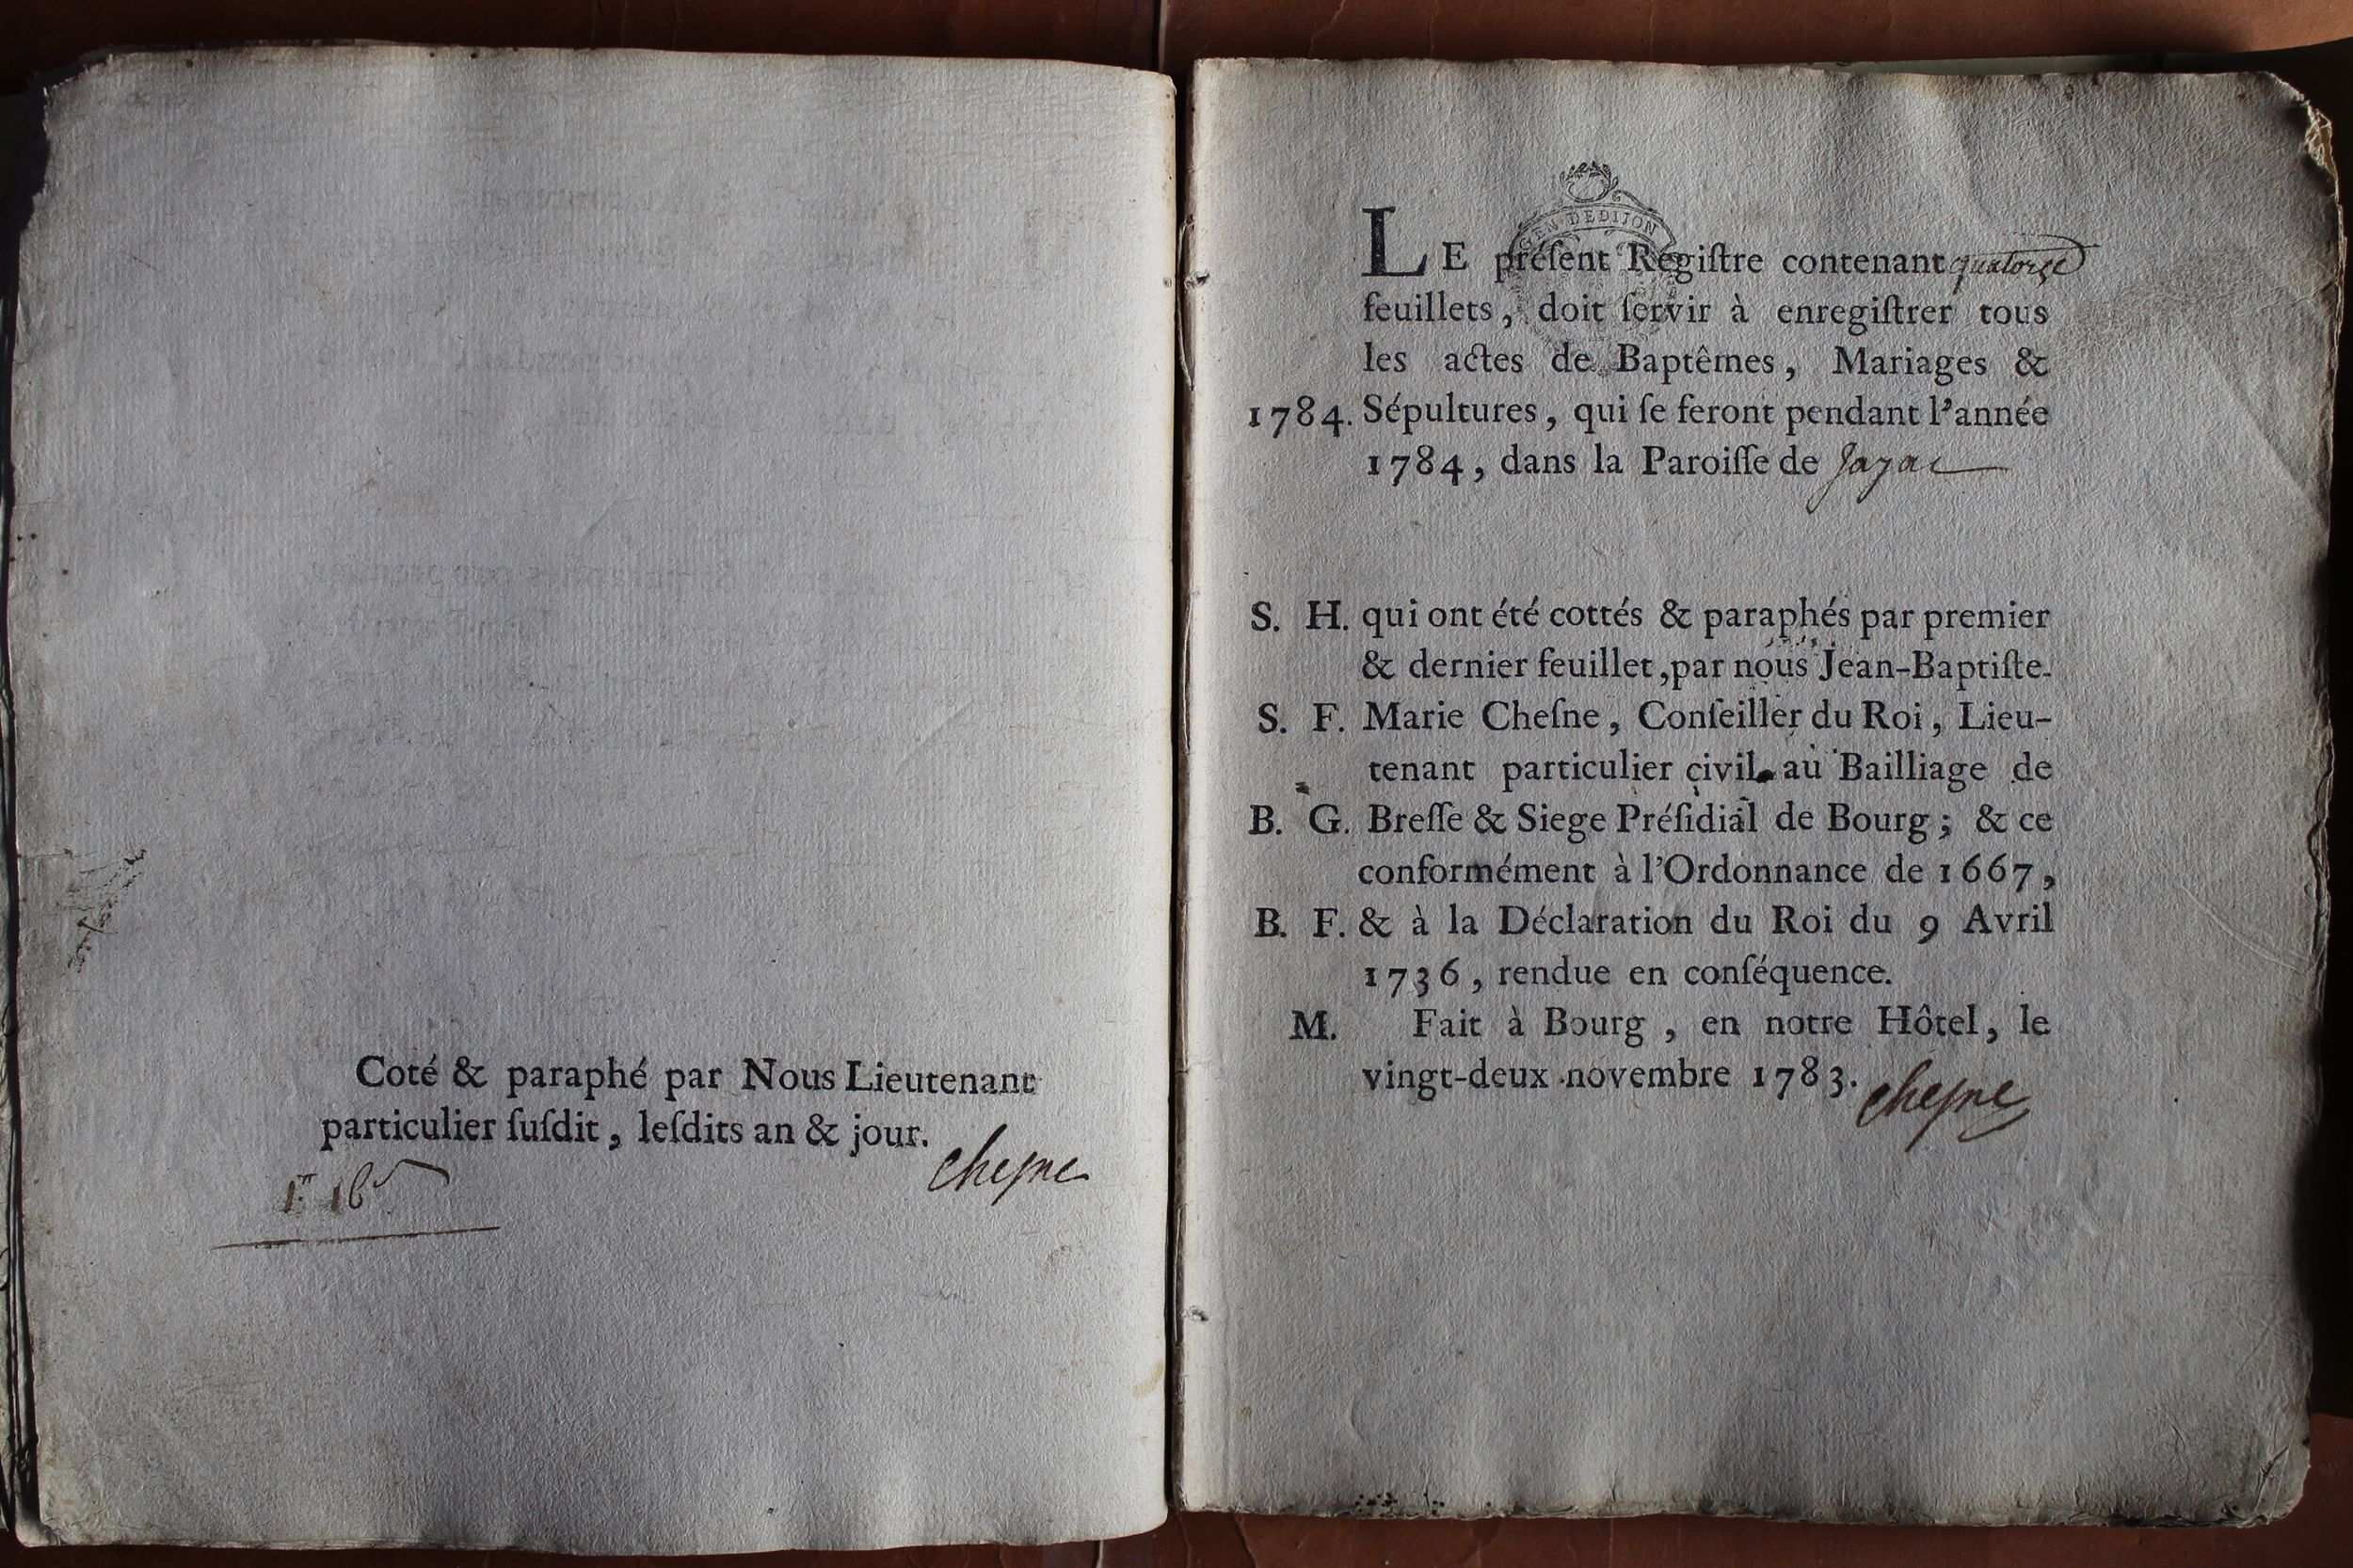 Coté & paraphé par Nous Lieutenant
particulier ſuſdit, leſdits an & jour.
cheſne
GEN. DE DIJON
LE préſent Regiſtre contenant quatorze
feuillets, doit ſervir à enregiſtrer tous
les actes de Baptêmes, Mariages &
1784. Sépultures, qui ſe feront pendant l'année
1784, dans la Paroiſſe de Jayac
S. H. qui ont été cottés & paraphés par premier
& dernier feuillet, par nous Jean-Baptiſte-
S. F. Marie Cheſne, Conſeiller du Roi, Lieu-
tenant particulier civil au Bailliage de
B. G. Breſſe & Siege Préſidial de Bourg; & ce
conformément à l'Ordonnance de 1667,
B. F. & à la Déclaration du Roi du 9 Avril
1736, rendue en conſéquence.
M. Fait à Bourg, en notre Hôtel, le
vingt-deux novembre 1783.
cheſne